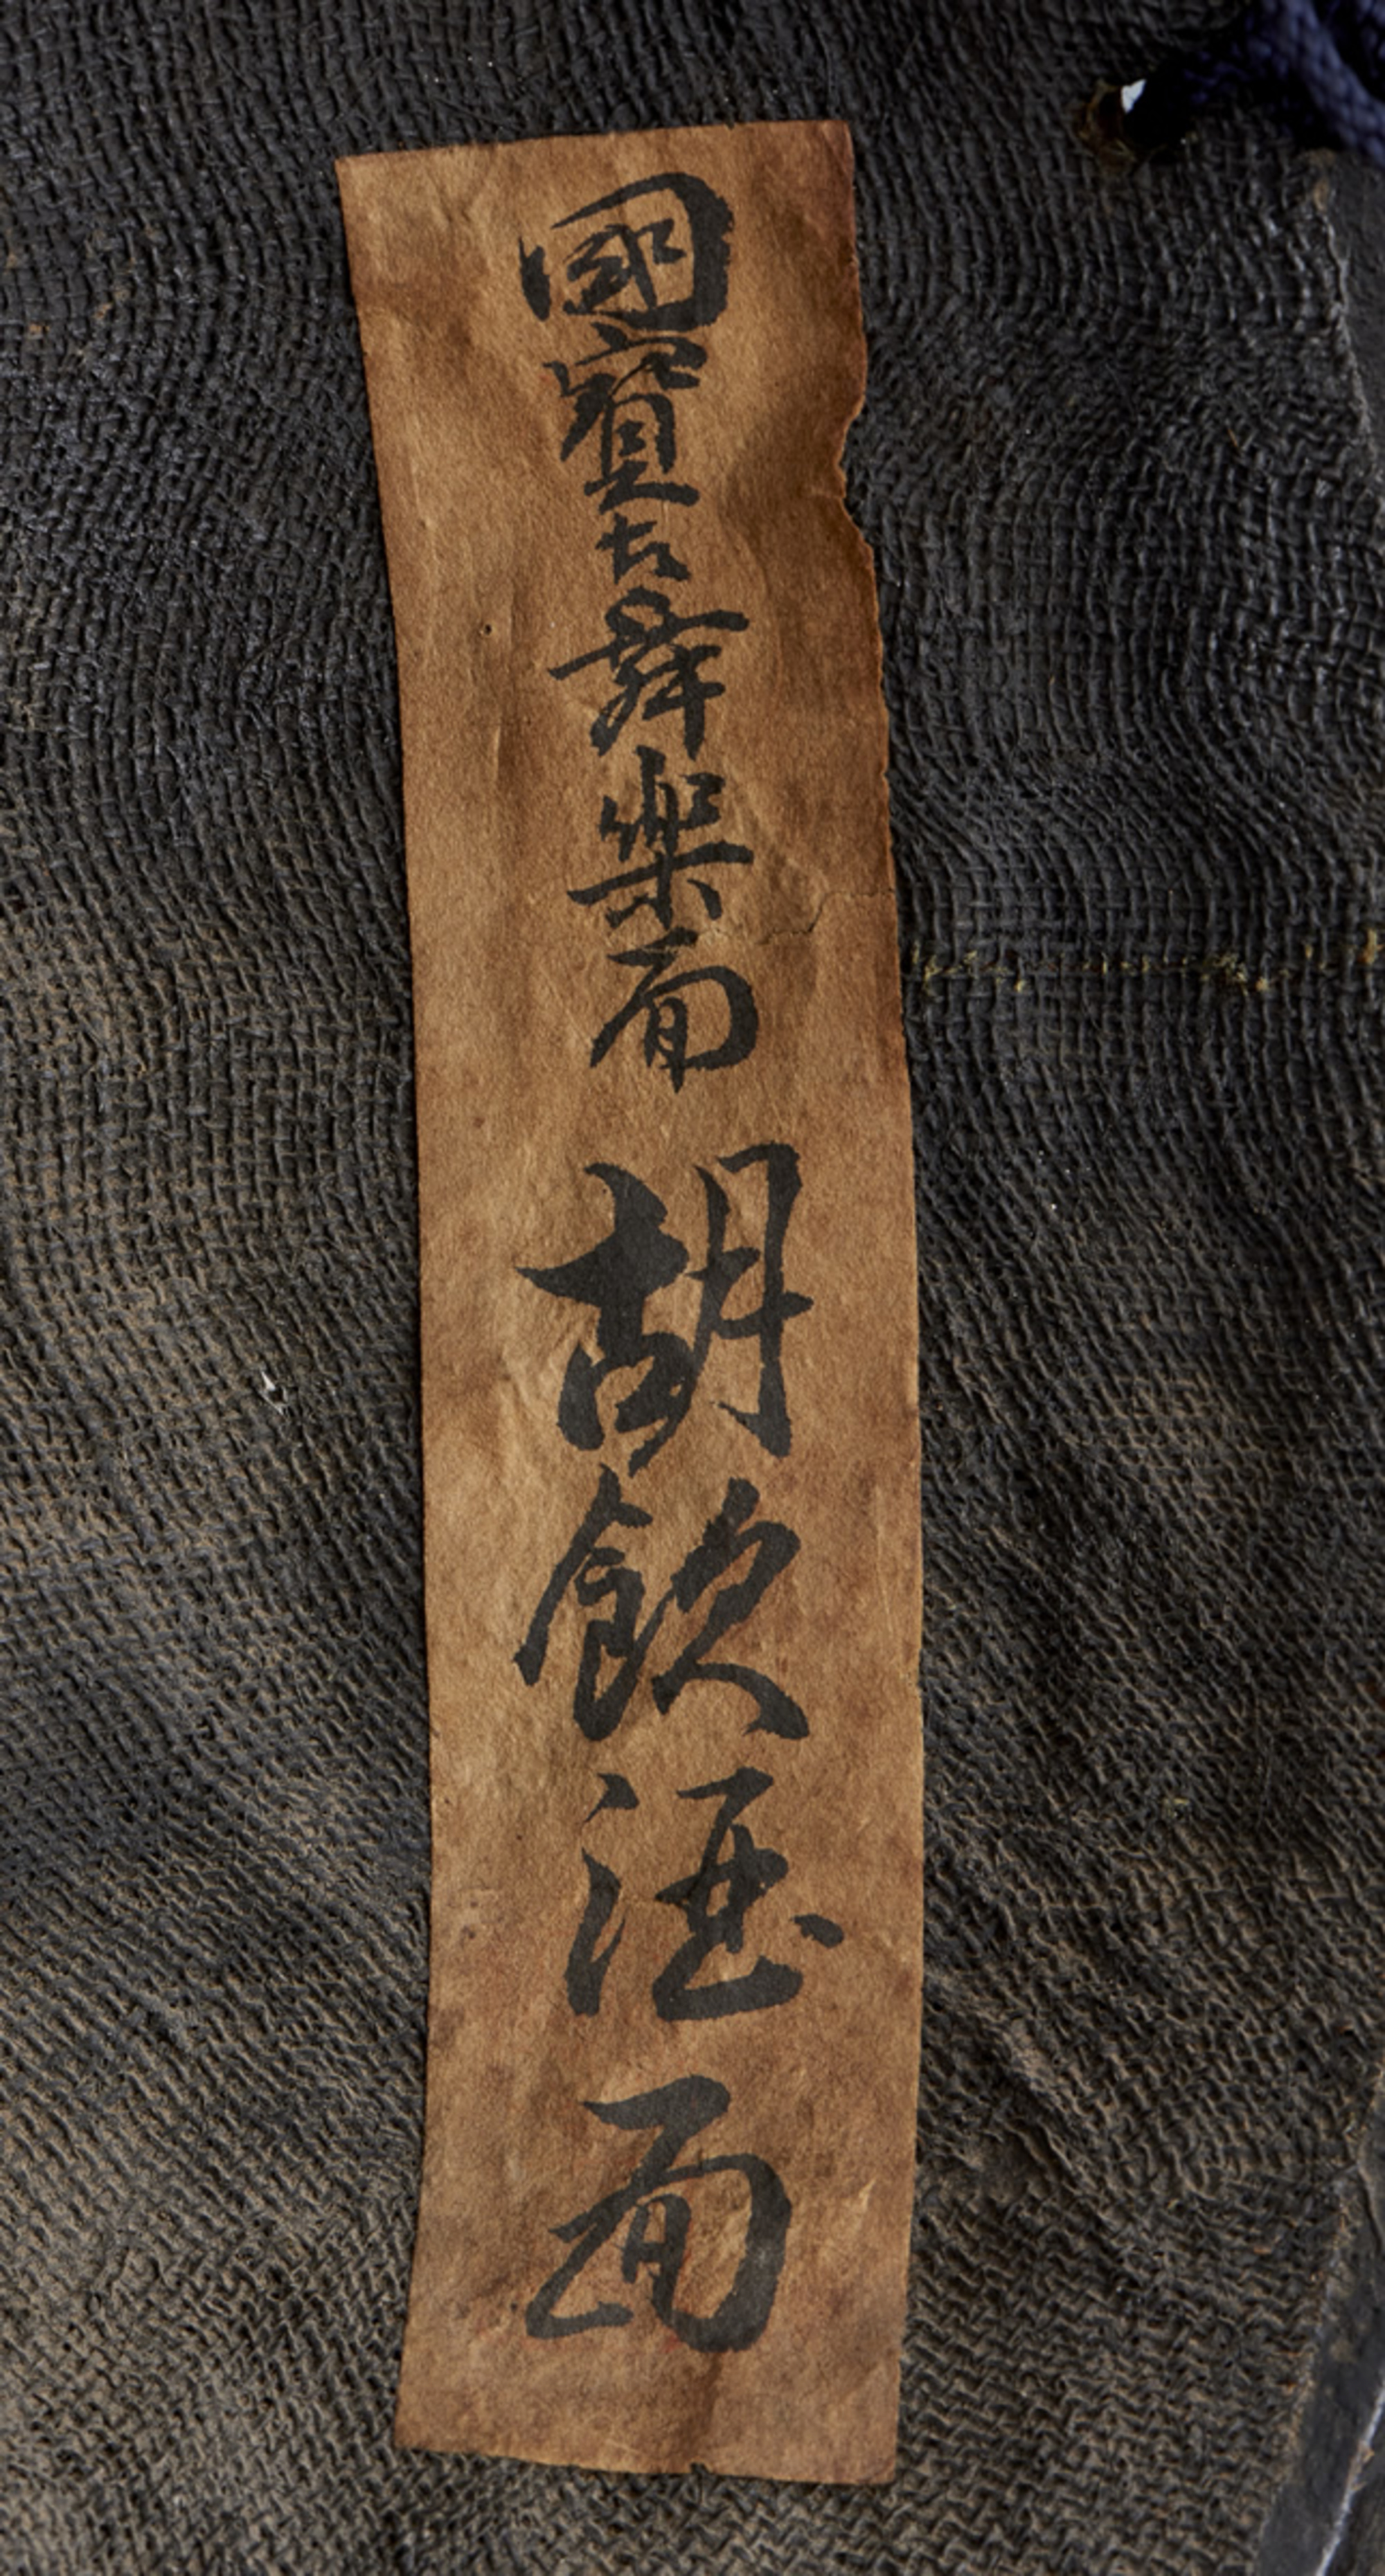 國寳古舞楽面 胡飲酒面